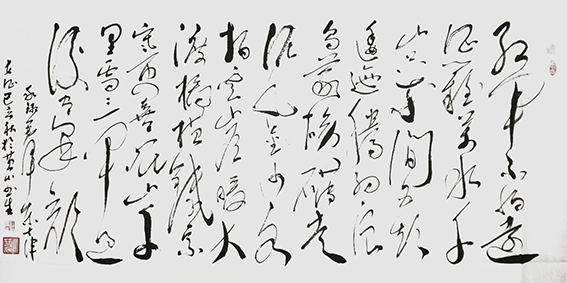 红军不怕远
征难万水千
山只等闲五岭
逶迤腾细浪
乌蒙磅礴走
泥丸金沙水
拍云崖暖大
渡桥横铁索
寒更喜岷山千
里雪三军过
后尽开颜
东七律
长征秋於黄山